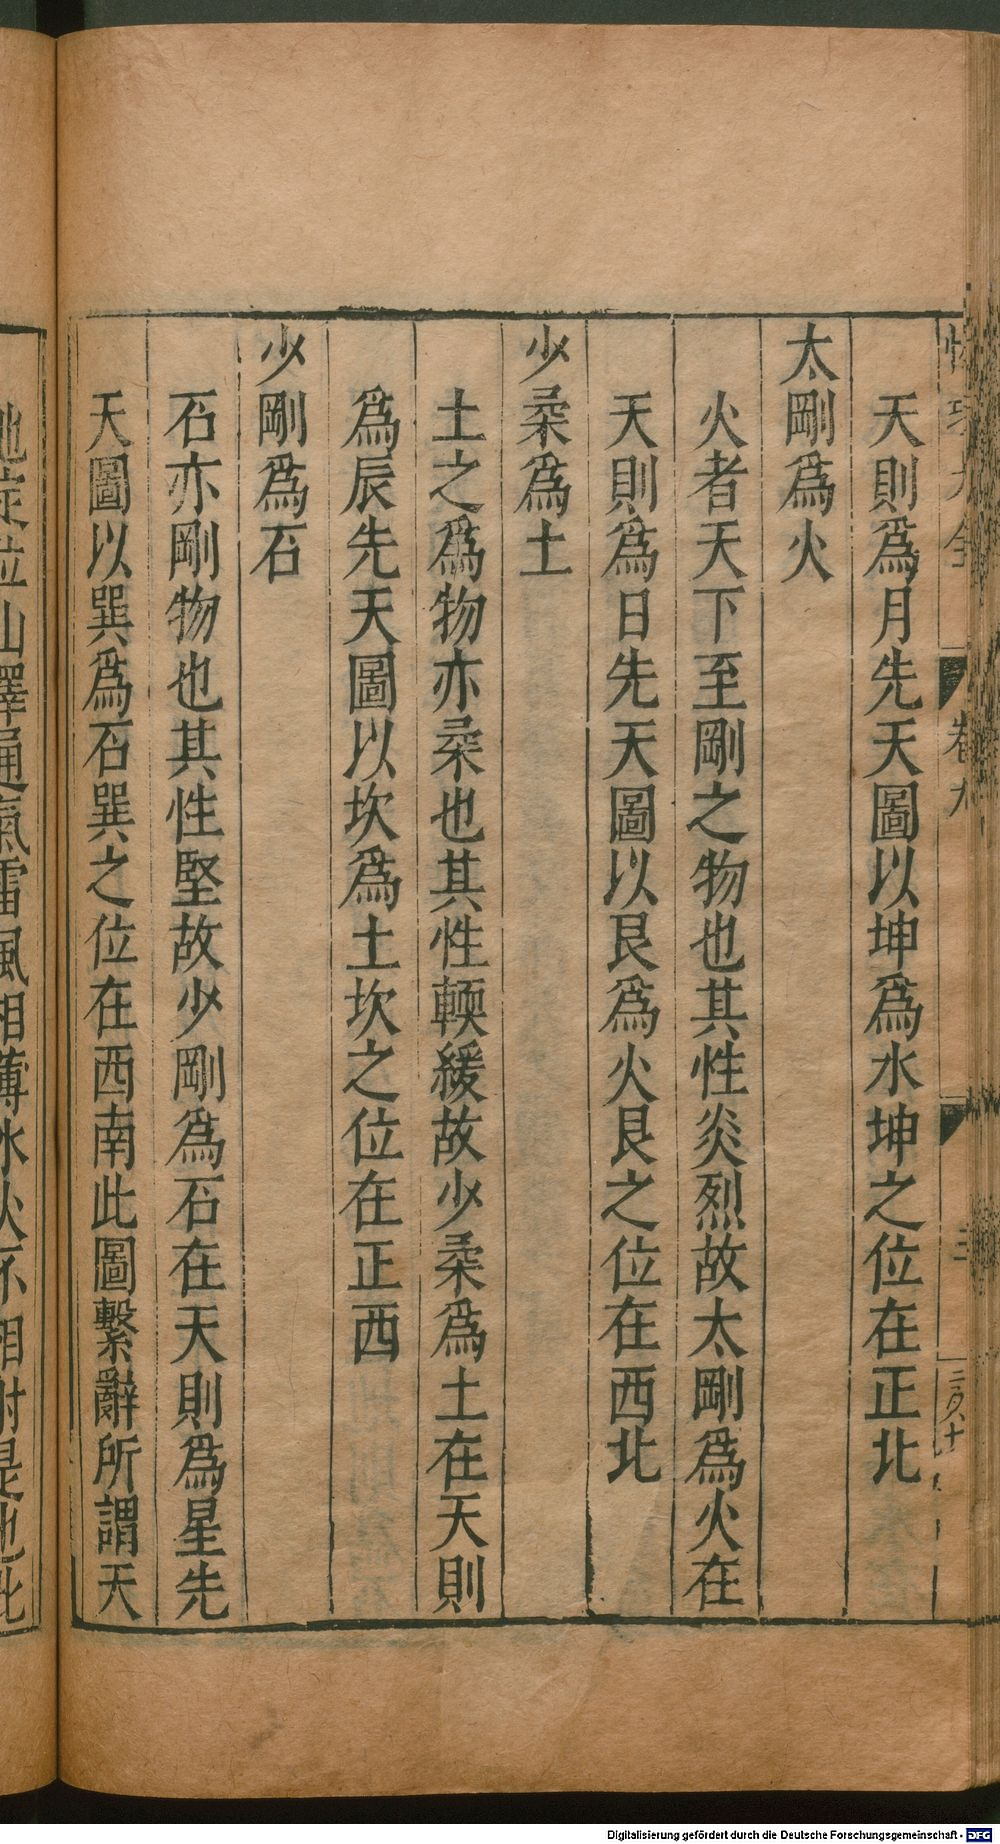 性理大全
卷九
三
天則爲月先天圖以坤爲水坤之位在正北
太剛爲火
火者天下至剛之物也其性炎烈故太剛爲火在
天則爲日先天圖以艮爲火艮之位在西北
少柔爲土
土之爲物亦柔也其性輭緩故少柔爲土在天則
爲辰先天圖以坎爲土坎之位在正西
少剛爲石
石亦剛物也其性堅故少剛爲石在天則爲星先
天圖以巽爲石巽之位在西南此圖繫辭所謂天
地定位山澤通氣雷風相薄水火不相射是也此
Digitalisierung gefördert durch die Deutsche Forschungsgemeinschaft - DFG